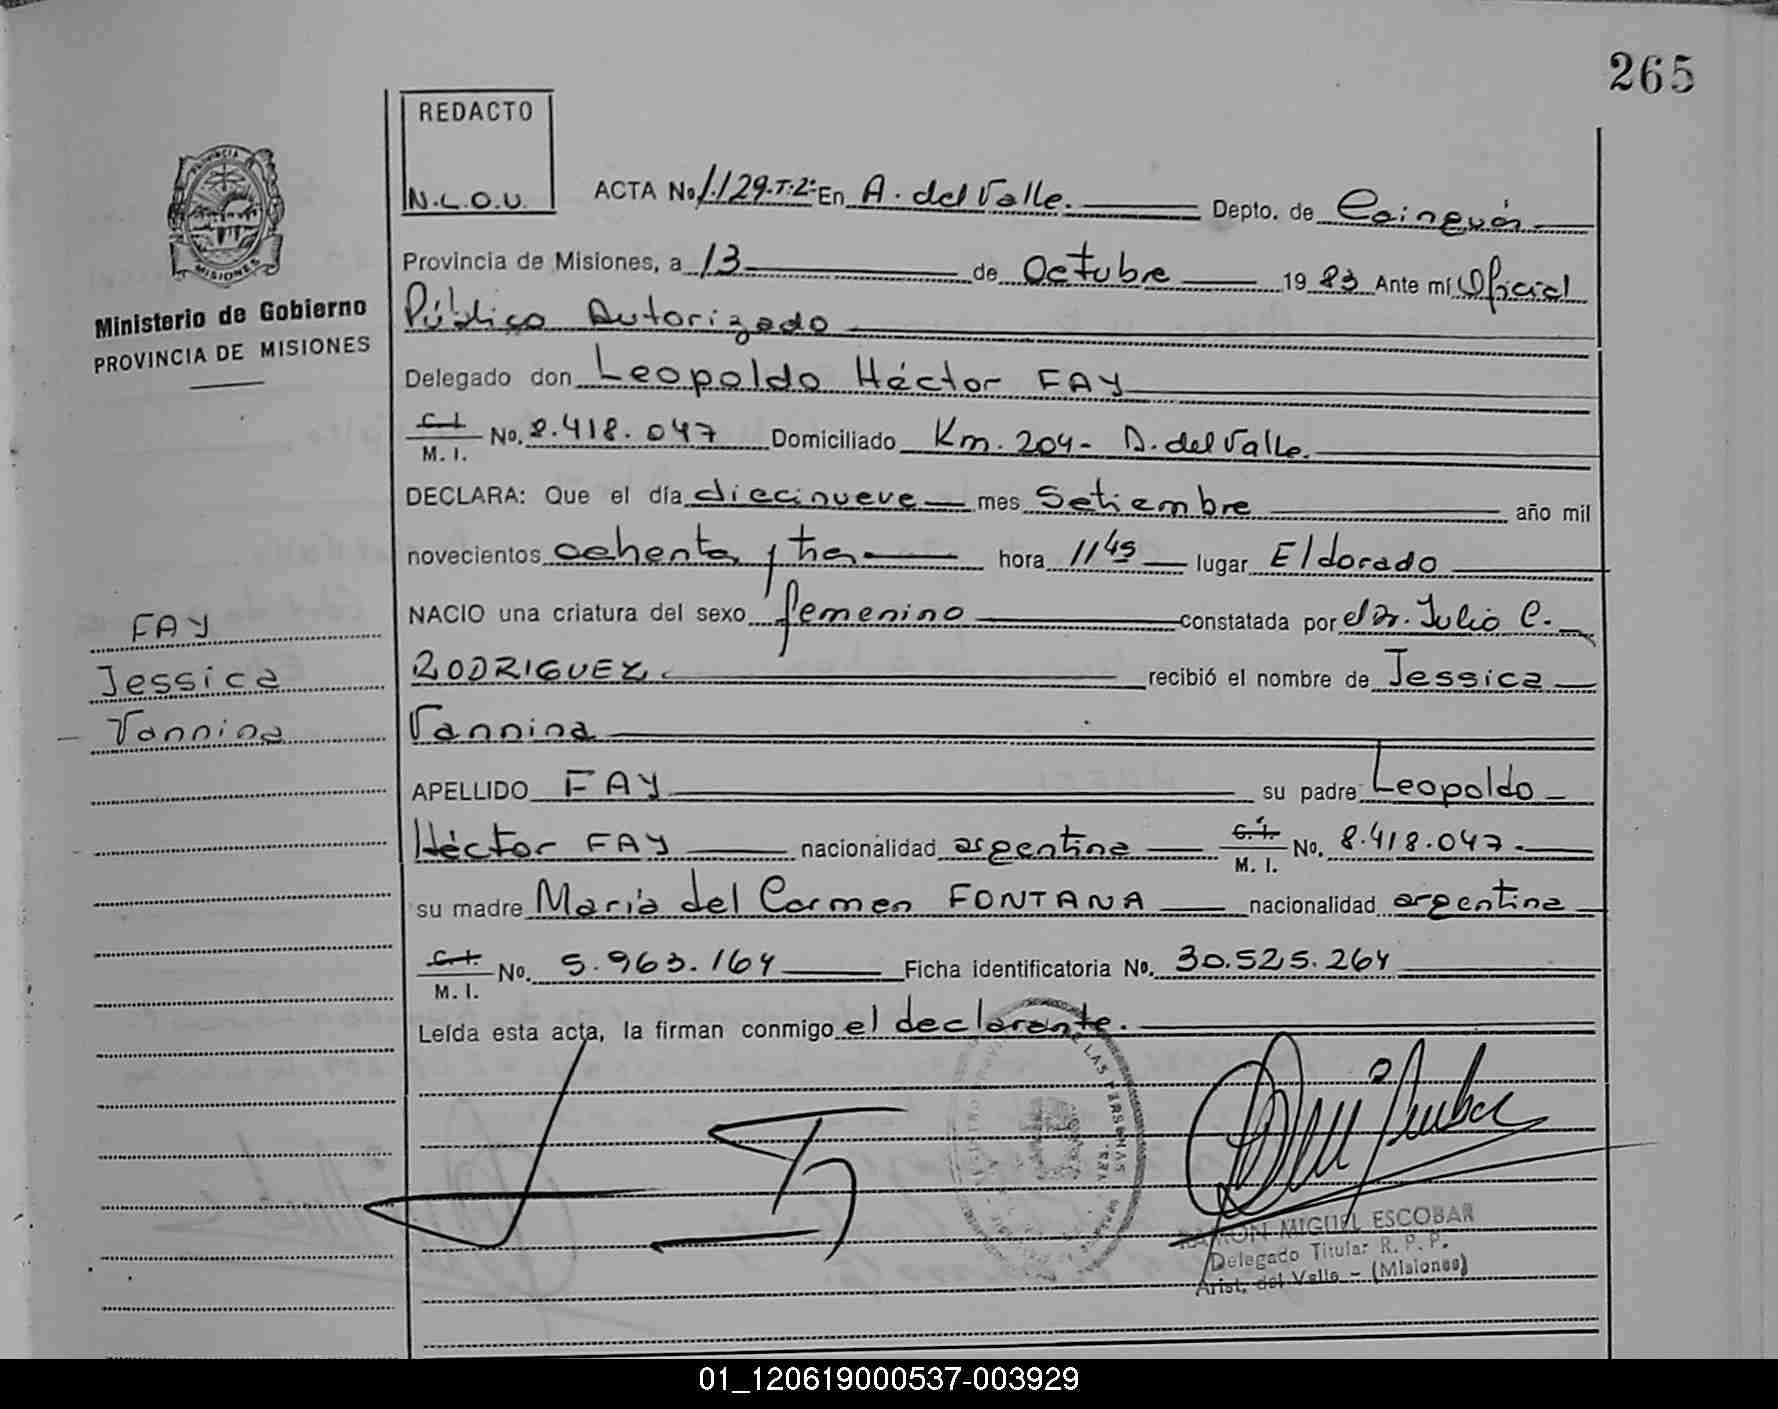 265
REDACTO
N.L.O.U.
ACTA No 1.129.T.2º En A. del Valle. Depto. de Cainguás
Provincia de Misiones, a 13 de Octubre 1983 Ante mí Oficial
Público Autorizado
Delegado don Leopoldo Héctor FAY
C.I. M. I. No. 8.418.047 Domiciliado Km. 204- A. del Valle.
DECLARA: Que el día diecinueve mes Setiembre año mil
novecientos ochenta y tres hora 11 45 lugar Eldorado
NACIO una criatura del sexo femenino constatada por el Dr. Julio C.
RODRIGUEZ. recibió el nombre de Jessica
Vannina
APELLIDO FAY su padre Leopoldo
Héctor FAY nacionalidad argentina C.I. M. I. No. 8.418.047.
su madre María del Carmen FONTANA nacionalidad argentina
C.I. M. I. No. 5.963.164 Ficha identificatoria No. 30.525.264
Leída esta acta, la firman conmigo el declarante.
Ministerio de Gobierno
PROVINCIA DE MISIONES
FAY
Jessica
Vannina
PROVINCIA
MISIONES
DE LAS PERSONAS
RAMON MIGUEL ESCOBAR
Delegado Titular R. P. P.
Arist. del Valle - (Misiones)
01_120619000537-003929